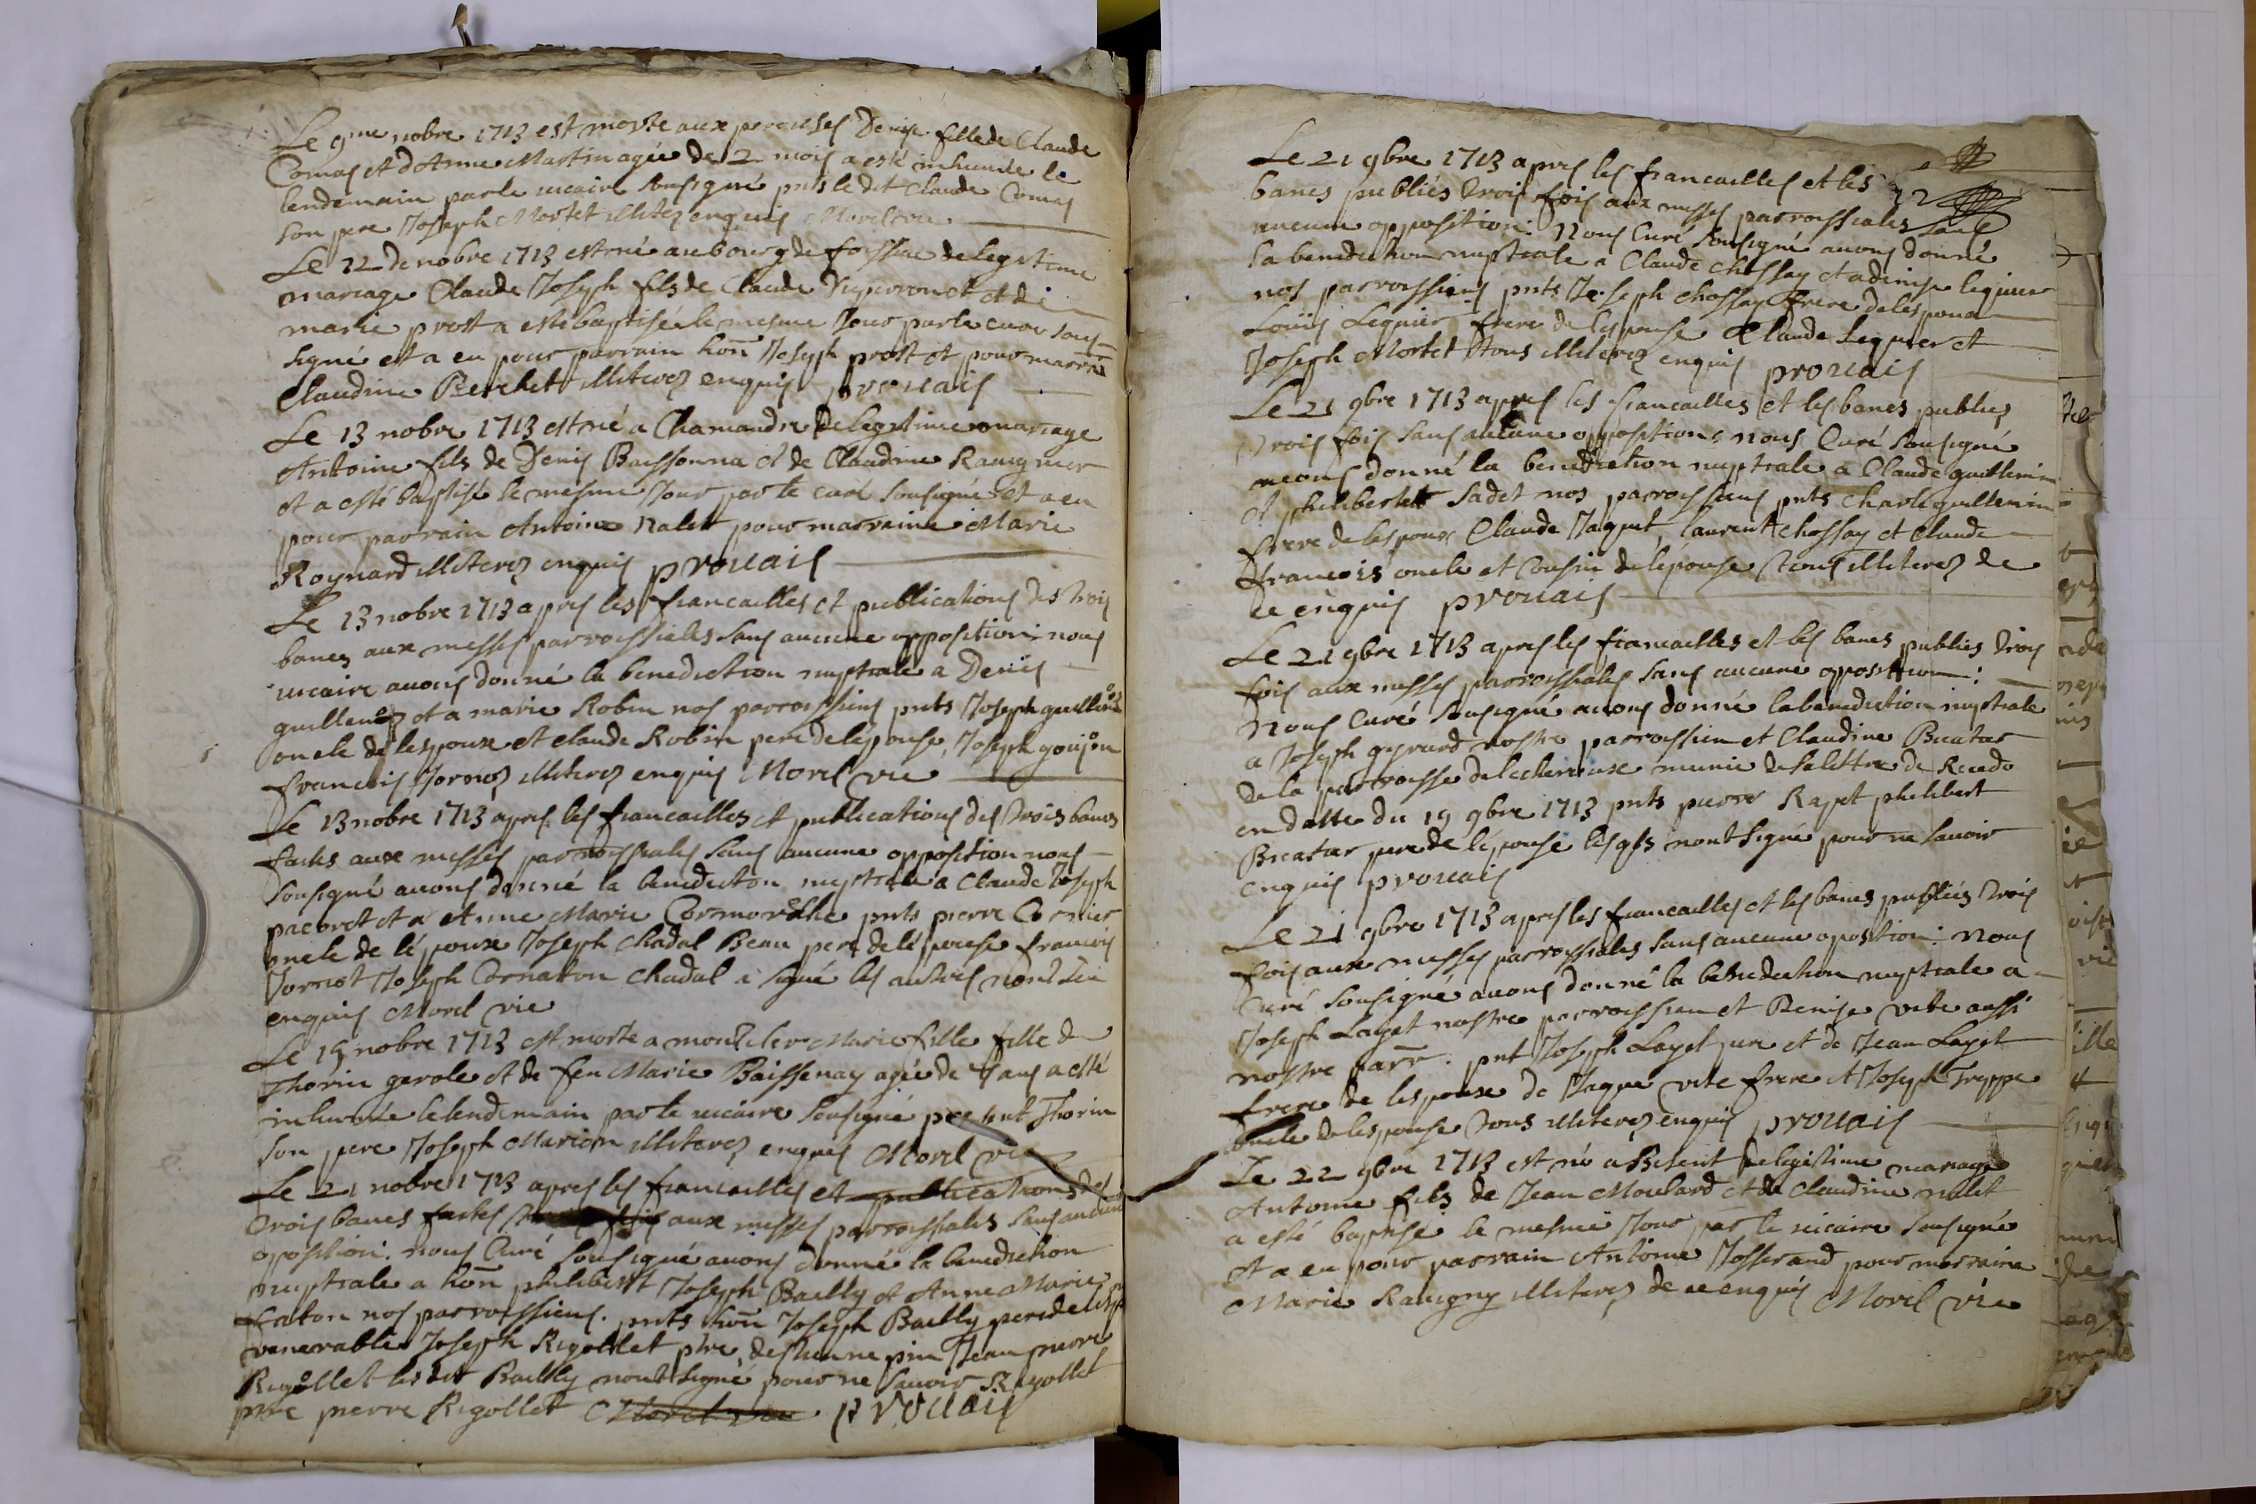 Le 9me nobre 1713 est morte aux Denise fille de Claude
Comas et d'Anne Martin agée de 2 mois a esté inhumée le
lendemain par le vicaire sousigné pnts le dit Claude Comas
son pere Joseph Mortet illiterez enquis Morel vic
Le 12 de nobre 1713 est né au bourg de foissiac de legitime
mariage Claude Joseph fils de Claude Duperron et de
marie prost a esté baptisé le mesme Jour par le curé sous
signé et a eu pour parrain hon Joseph prost et pour marrne
Claudine Berthet illiterez enquis provais
Le 13 nobre 1713 est né a Chamandre de legitime mariage
Antoine fils de Denis Buissonna et de Claudine
et a esté baptisé le mesme Jour par le curé sousigné et a eu
pour parrain Antoine nalet pour marraine Marie
Roynard illiterez enquis provais
Le 13 nobre 1713 apres les fiancailles et publications des trois
bancs aux messes parroissiales sans aucune opposition nous
vicaire avons donné la benediction nuptiale a Denis
et a marie Robin nos parroissiens pnts Joseph
oncle de lespoux et claude Robin pere de lepouse, Joseph goujon
francois illiterez enquis Morel vic
Le 13 nobre 1713 apres les fiancailles et publications des trois bancs
faites aux messes parroissiales sans aucune opposition nous
sousigné avons donné la benediction nuptiale a Claude Joseph
pacoret et a Anne Marie Cormoreche pnts pierre Cornier
oncle de lépoux Joseph chadal Beau pere de lépouse francois
Joseph Cornaton chadal a signé les autres non de ce
enquis Morel vic
Le 19 nobre 1713 est morte a montcler Marie fille fille de
Thorin garole et de feu Marie Boissenay agée de ans a esté
inhumée le lendemain par le vicaire sousigné present Thorin
son pere Joseph Marion illiterez enquis Morel vic
Le 21 nobre 1713 apres les fiancailles et publications des
trois bancs faites aux messes parroissiales sans aucune
oposition. nous Curé sousigné avons donné la benediction
nuptiale a hon philibert Joseph Bailly et Anne Marie
faton nos parroissiens. pnts hon Joseph Bailly pere de
venerable Joseph Rigollet ptre, Jean pierre
Rigollet les dit Bailly nont signé pour ne savoir Rigollet
ptre pierre Rigollet Morel vic provais
Le 21 9bre 1713 apres les fiancailles et les
bancs publiés trois fois aux messes parroissiales sans
aucune opposition. Nous Curé sousigné avons donné
la benediction nuptiale a Claude chossay et a denise lequier
nos parroissiens pnts Joseph chossay frere de lespoux
Loüis Lequier frere de lespouse Claude Lequier et
Joseph Mortet tous illiterez enquis provais
Le 21 9bre 1713 apres les fiancailles et les bancs publies
trois fois sans aucune opposition. nous Curé sousigné
avons donné la benediction nuptiale a Claude guillemin
et philiberte sadet nos parroissiens pnts Charle guillemin
frere de lespoux Claude Jaquet, laurent chossay et Claude
francois oncle et Cousin de lépouse tous illiterez de
ce enquis provais
Le 21 9bre 1713 apres les fiancailles et les bancs publiés trois
fois aux messes parroissiales sans aucune oposition:
Nous Curé sousigné avons donné la benediction nuptiale
a Joseph gyrard nostre parroissien et Claudine Buatar
de la parroisse de lecheroux munie de sa lettre de Recedo
en datte du 19 9bre 1713 pnts pierre Rapet philibert
Buatar pere de lépouse lesqls nont signé pour ne savoir
enquis provais
Le 21 9bre 1713 apres les fiancailles et les bancs publiés trois
fois aux messes parroissiales sans aucune oposition: nous
Curé sousigné avons donné la benediction nuptiale a
Joseph Layet nostre parroissien et Denise vite aussi
nostre parr. pnt Joseph Layet pere et de Jean Layet
frere de lespoux de Jaque vite frere et Joseph
oncle de lespouse tous illiterez enquis provais
Le 22 9bre 1713 est né a Besent de legitime mariage
Antoine fils de Jean Moulard et de Claudine nalet
a esté baptisé le mesme Jour par le vicaire sousigné
et a eu pour parrain Antoine Josserand pour marraine
Marie Ravigny illiterez de ce enquis Morel vic